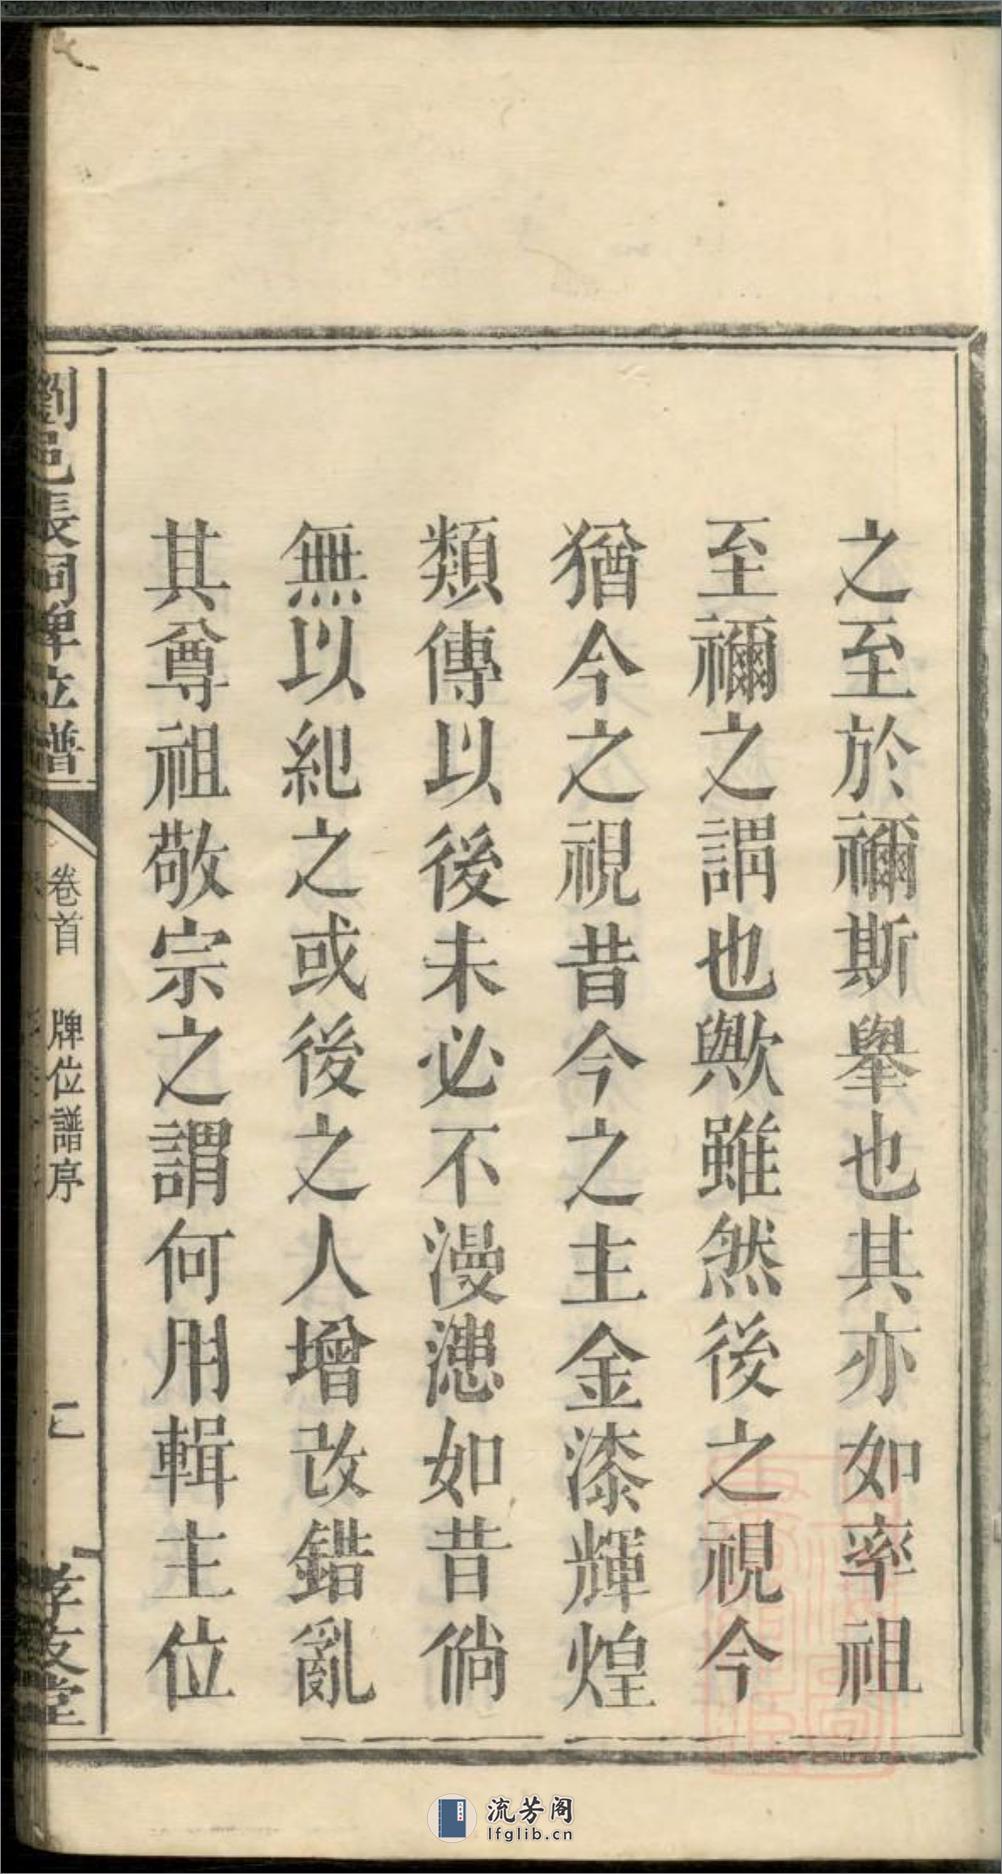 之至於禰斯舉也其亦如率祖
至禰之謂也歟雖然後之視今
猶今之視昔今之主金漆輝煌
類傳以後未必不漫漶如昔倘
無以紀之或後之人增改錯亂
其尊祖敬宗之謂何用輯主位
劉邑張祠牌位譜
卷首
牌位譜序
孝友堂
流芳阁
lfglib.cn